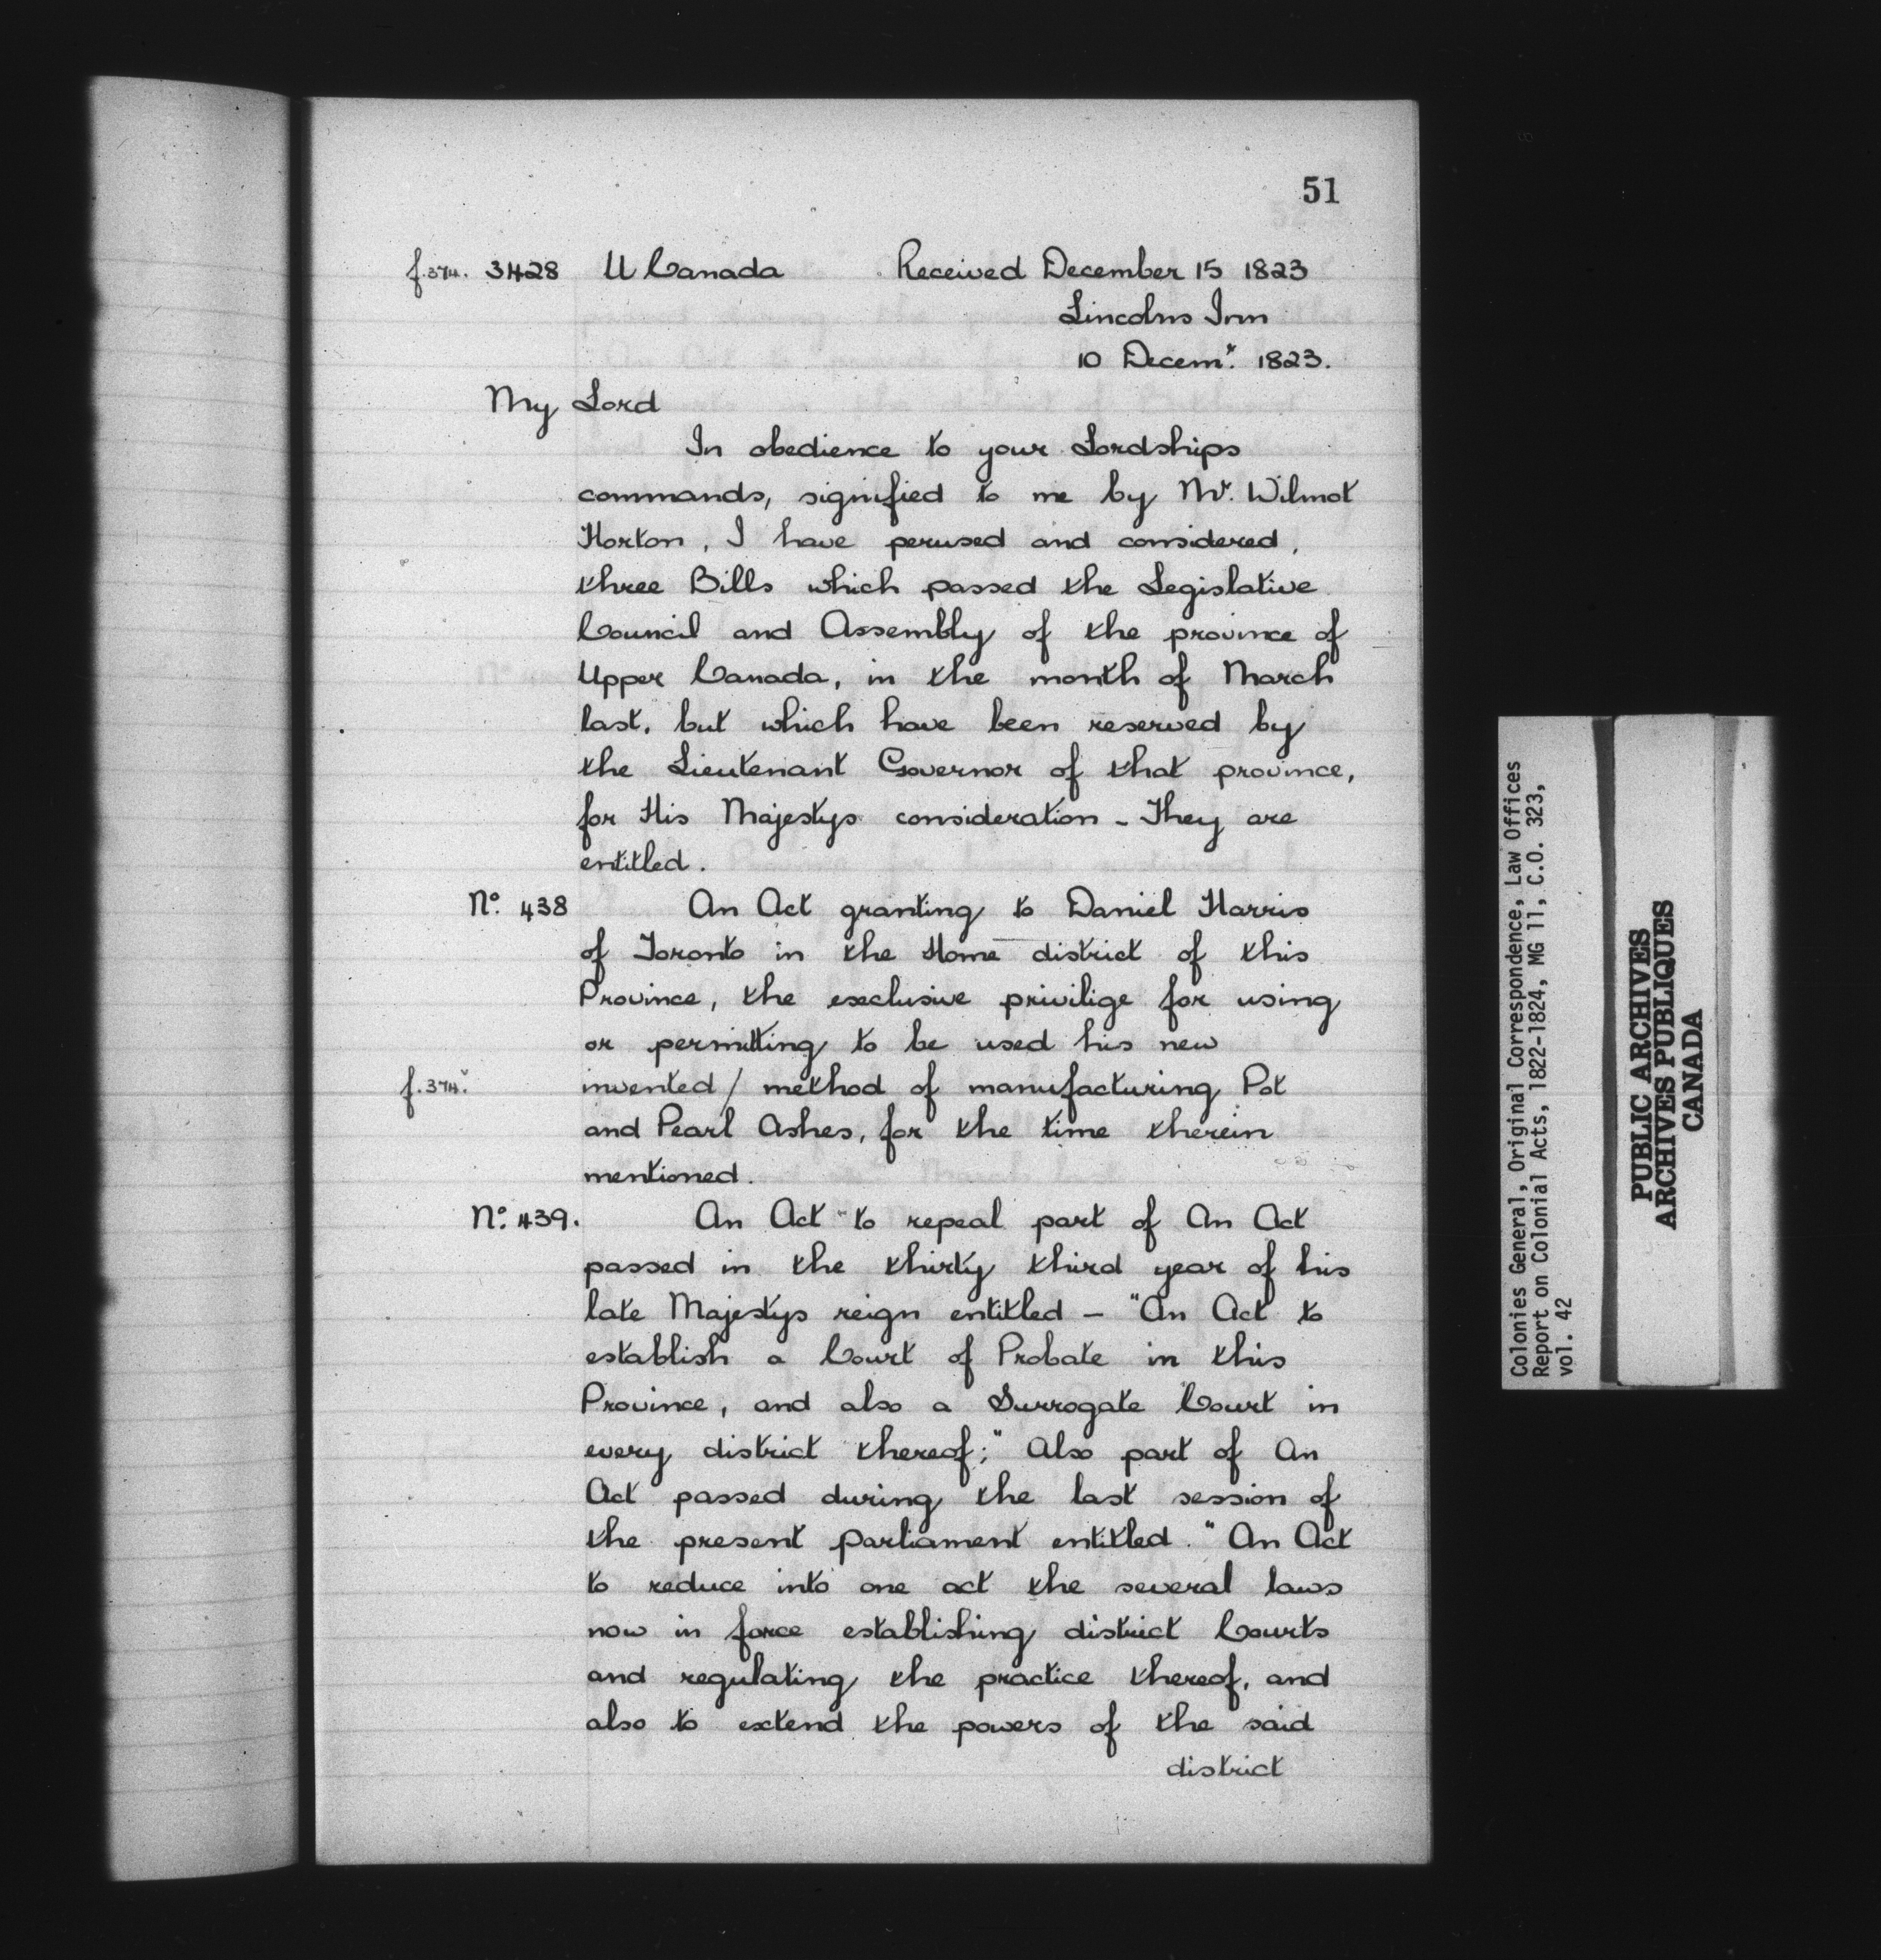 51
f.374. 3428 U Canada Received December 15 1823
Lincolns Inn
10 Decemr. 1823.
My Lord
In obedience to your Lordships
commands, signified to me by Mr. Wilmot
Horton, I have perused and considered,
three Bills which passed the Legislative
Council and Assembly of the province of
Upper Canada, in the month of March
last, but which have been reserved by
the Lieutenant Governor of that province,
for His Majestys consideration - They are
entitled.
No. 438 An Act granting to Daniel Harris
of Toronto in the Home district of this
Province, the exclusive privilige for using
or permitting to be used his new
f.374v. invented / method of manufacturing Pot
and Pearl Ashes, for the time therein
mentioned.
No. 439. An Act "to repeal part of An Act
passed in the thirty third year of his
late Majestys reign entitled - "An Act to
establish a Court of Probate in this
Province, and also a Surrogate Court in
every district thereof;" Also part of An
Act passed during the last session of
the present parliament entitled. "An Act
to reduce into one act the several laws
now in force establishing district Courts
and regulating the practice thereof, and
also to extend the powers of the said
district
Colonies General, Original Correspondence, Law Offices
Report on Colonial Acts, 1822-1824, MG 11, C.O. 323,
vol. 42
PUBLIC ARCHIVES
ARCHIVES PUBLIQUES
CANADA